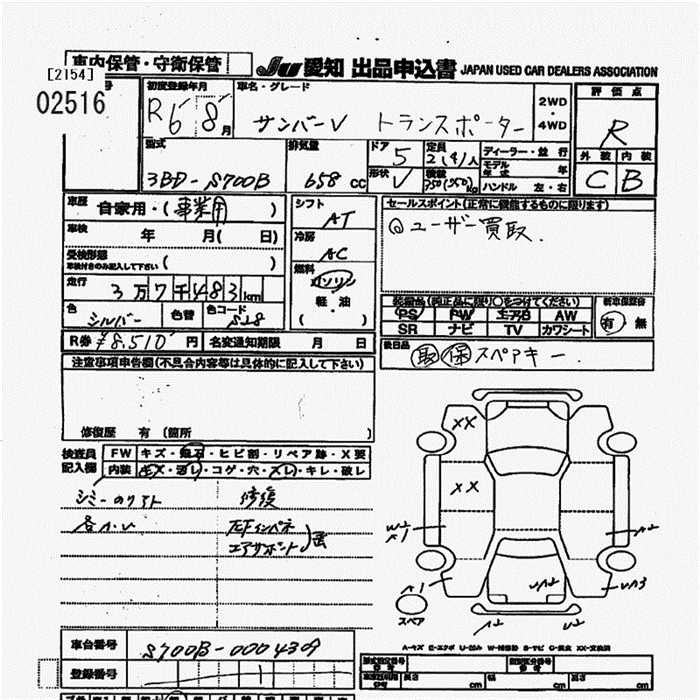 車内保管・守衛保管
JU 愛知 出品申込書 JAPAN USED CAR DEALERS ASSOCIATION
[2154]
02516
初度登録年月 車名・グレード 評価点
R6年 8月 サンバーV トランスポーター 2WD・4WD R
型式 排気量 ドア 定員 ディーラー・並行 外装 内装
3BD-S700B 658cc 5 2(4)人 モデル年式 年 C B
形状 V 積載 350(250)kg ハンドル 左・右
車歴 自家用・(事業用) シフト AT セールスポイント(正常に機能するものに限ります)
車検 年 月( 日) 冷房 AC ◎ユーザー買取.
受検形態
車検付きのみ記入して下さい ( )
燃料 ガソリン 軽・油 ( )
走行 3万7千483km
装備品(純正品に限り○をつけてください) 新車保証書
PS PW エアB AW 有・無
SR ナビ TV カワシート
色 シルバー 色替 色コード S28
R券 ¥8,510円 名変通知期限 月 日
後日品 取 保 スペアキー
注意事項申告欄(不具合内容等は具体的に記入して下さい)
修復歴 有(箇所 )
検査員記入欄 FW キズ・飛石・ヒビ割・リペア跡・X要
内装 キズ・汚レ・コゲ・穴・スレ・キレ・破レ
修復
XX
XX
A1
A2
スペア
A-キズ E-エクボ U-凹み W-補修跡 S-サビ C-腐食 XX-交換済
車台番号 S700B-0004309
登録番号
長さ cm 幅 cm 高さ cm